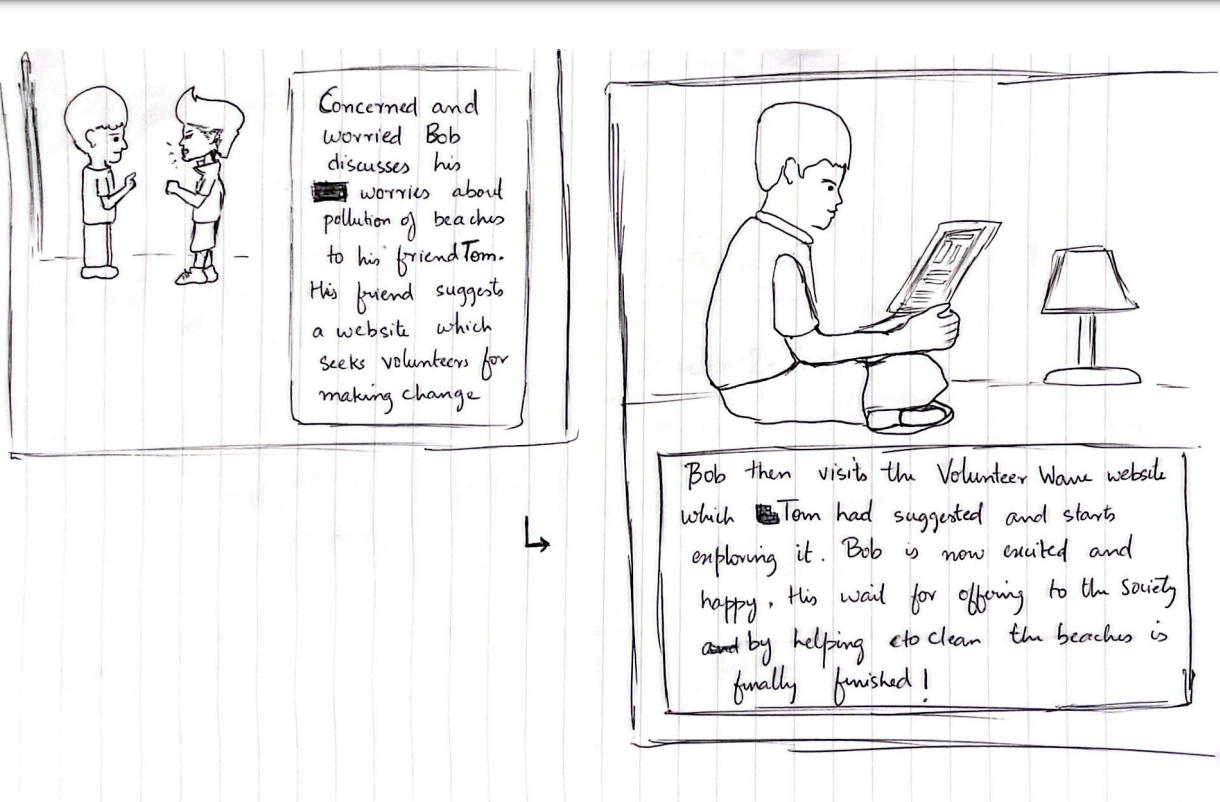 Concerned and
worried Bob
discusses his
worries about
pollution of beaches
to his friend Tom.
His friend suggests
a website which
seeks volunteers for
making change
Bob then visits the Volunteer Wave website
which Tom had suggested and starts
exploring it. Bob is now excited and
happy. His wait for offering to the society
and by helping to clean the beaches is
finally finished!